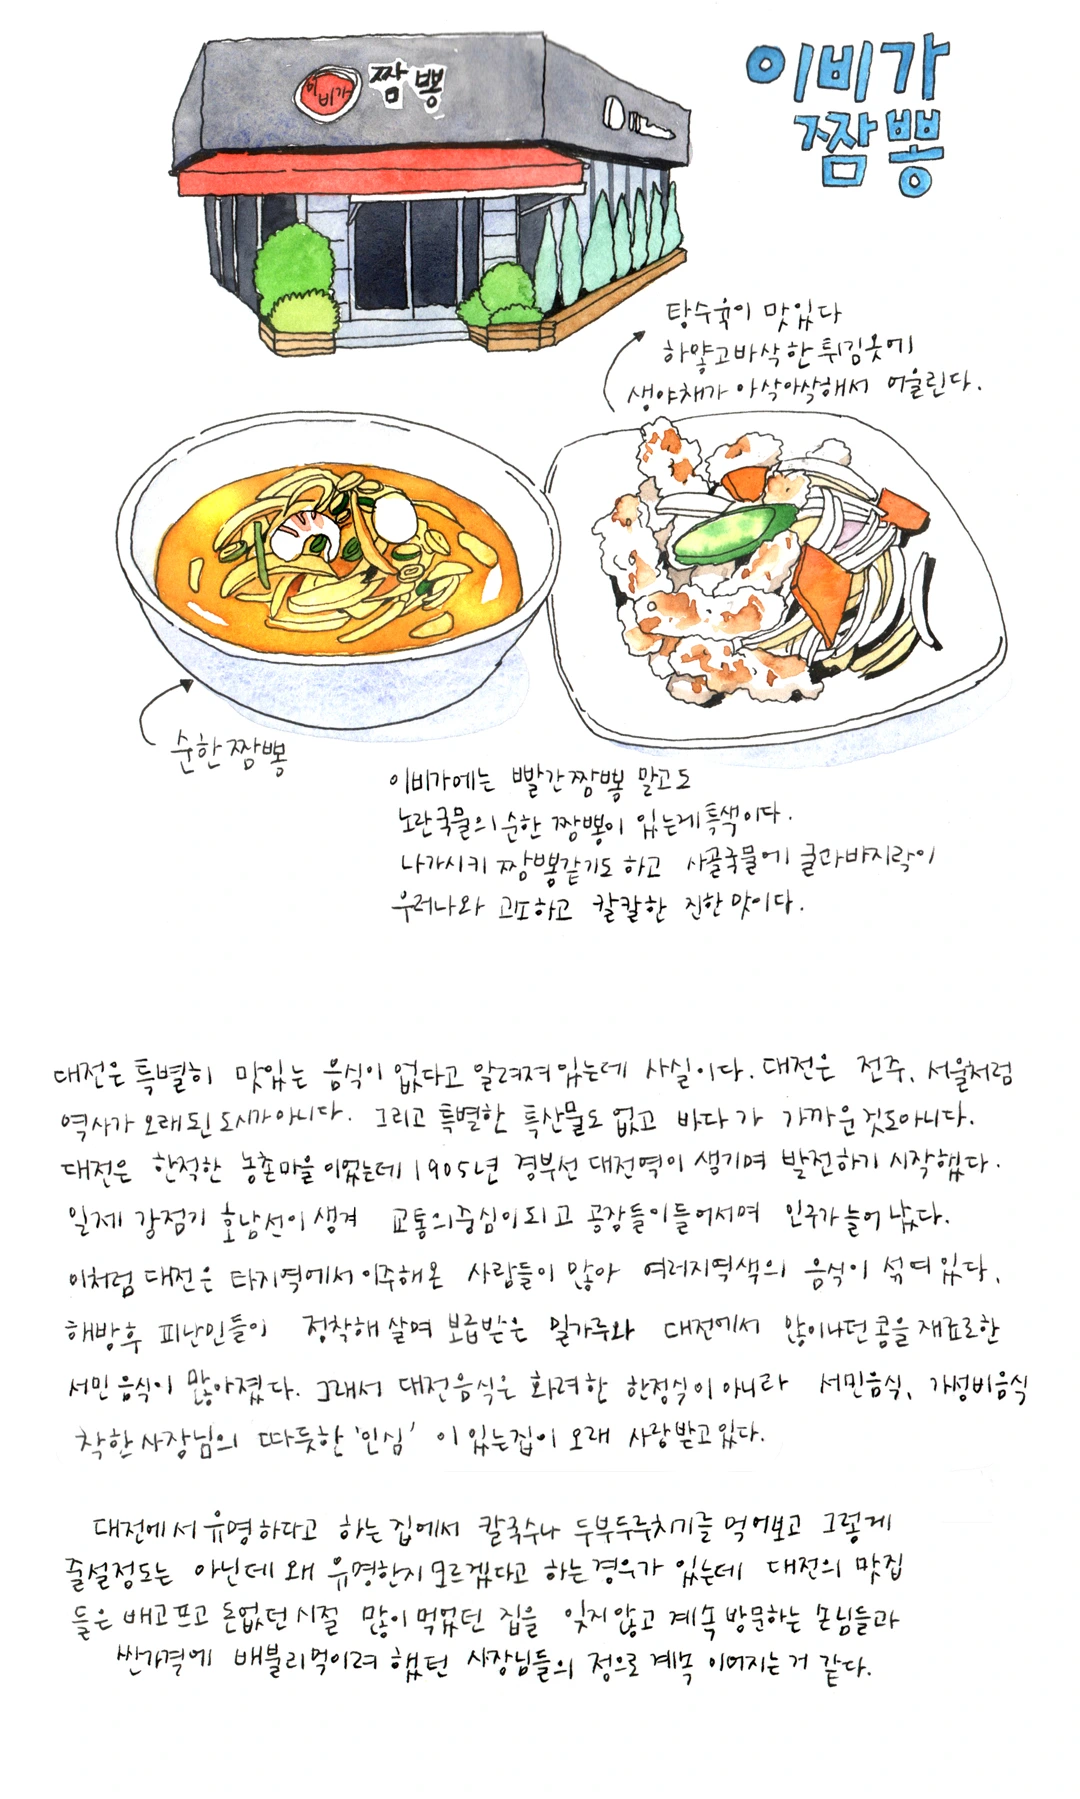 이비가 짬뽕
이비가
짬뽕
탕수육이 맛있다
하얗고바삭한 튀김옷에
생야채가 아삭아삭해서 어울린다.
순한짬뽕
이비가에는 빨간짬뽕 말고도
노란국물의 순한 짬뽕이 있는게특색이다.
나가사키 짬뽕같기도 하고 사골국물에 굴과바지락이
우러나와 고소하고 칼칼한 진한맛이다.
대전은 특별히 맛있는 음식이 없다고 알려져있는데 사실이다. 대전은 전주, 서울처럼
역사가 오래된 도시가아니다. 그리고 특별한 특산물도 없고 바다가 가까운것도아니다.
대전은 한적한 농촌마을이었는데 1905년 경부선 대전역이 생기며 발전하기 시작했다.
일제 강점기 호남선이생겨 교통의중심이되고 공장들이들어서며 인구가늘어났다.
이처럼 대전은 타지역에서이주해온 사람들이 많아 여러지역색의 음식이 섞여있다.
해방후 피난민들이 정착해살며 보급받은 밀가루와 대전에서 많이나던콩을재료로한
서민음식이 많아졌다. 그래서 대전음식은 화려한 한정식이아니라 서민음식, 가성비음식
착한사장님의 따듯한'인심' 이있는집이 오래 사랑받고있다.
대전에서 유명하다고 하는집에서 칼국수나 두부두루치기를 먹어보고 그렇게
줄설정도는 아닌데 왜 유명한지모르겠다고 하는경우가 있는데 대전의 맛집
들은 배고프고 돈없던시절 많이먹었던 집을 잊지않고 계속방문하는 손님들과
싼가격에 배불리먹이려 했던 사장님들의 정으로계속 이어지는거 같다.